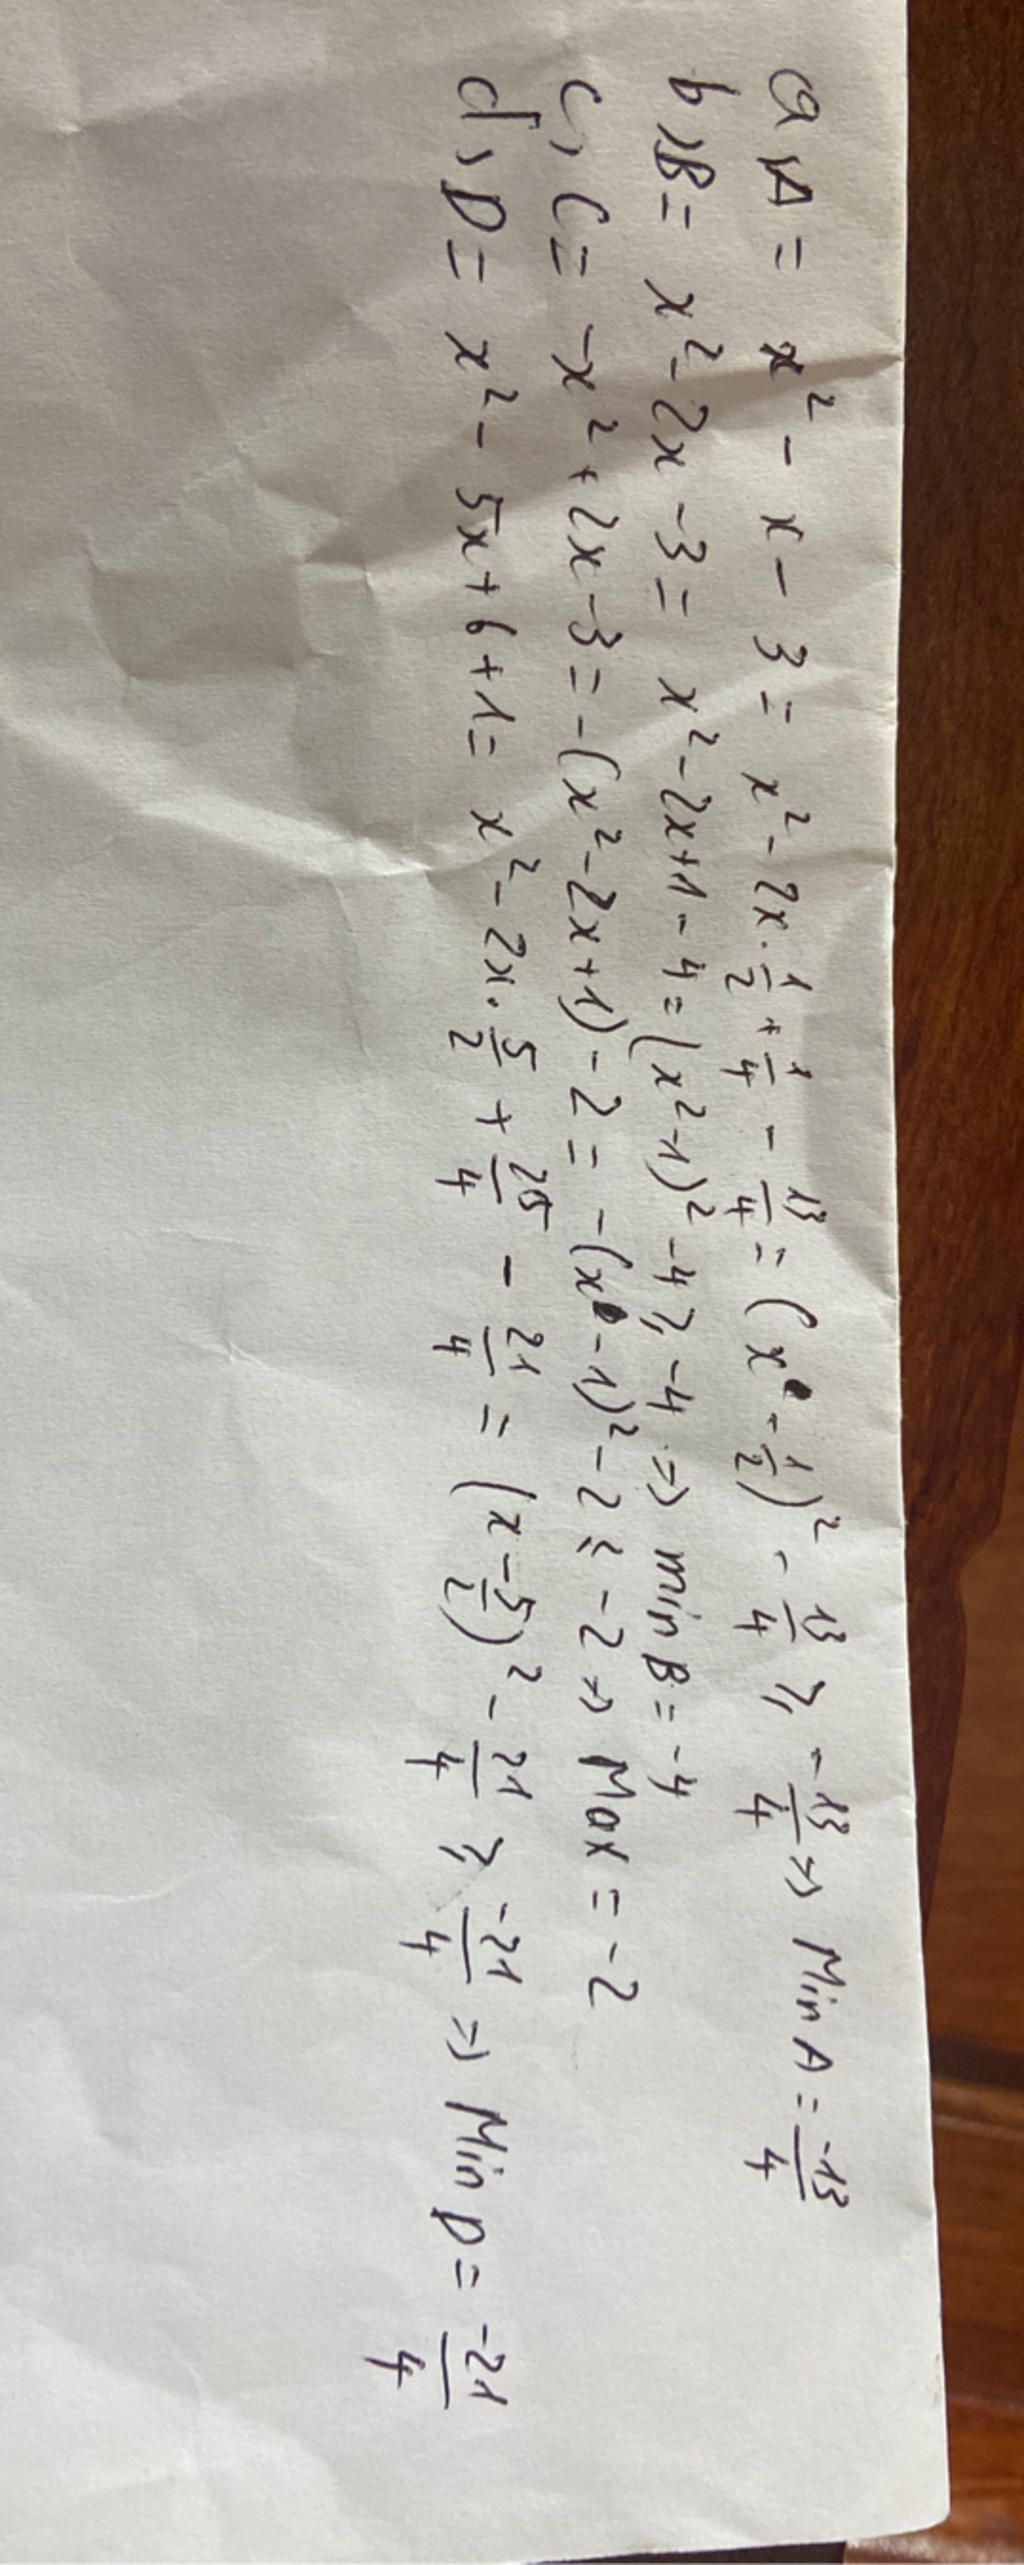 a, A = x² - x - 3 = x² - 2x . 1/2 + 1/4 - 13/4 = (x - 1/2)² - 13/4 ⩾ -13/4 => Min A = -13/4
b, B = x² - 2x - 3 = x² - 2x + 1 - 4 = (x² - 1)² - 4 ⩾ -4 => min B = -4
c, C = -x² + 2x - 3 = -(x² - 2x + 1) - 2 = -(x - 1)² - 2 ⩽ -2 => Max = -2
d, D = x² - 5x + 6 + 1 = x² - 2x . 5/2 + 25/4 - 21/4 = (x - 5/2)² - 21/4 ⩾ -21/4 => Min D = -21/4